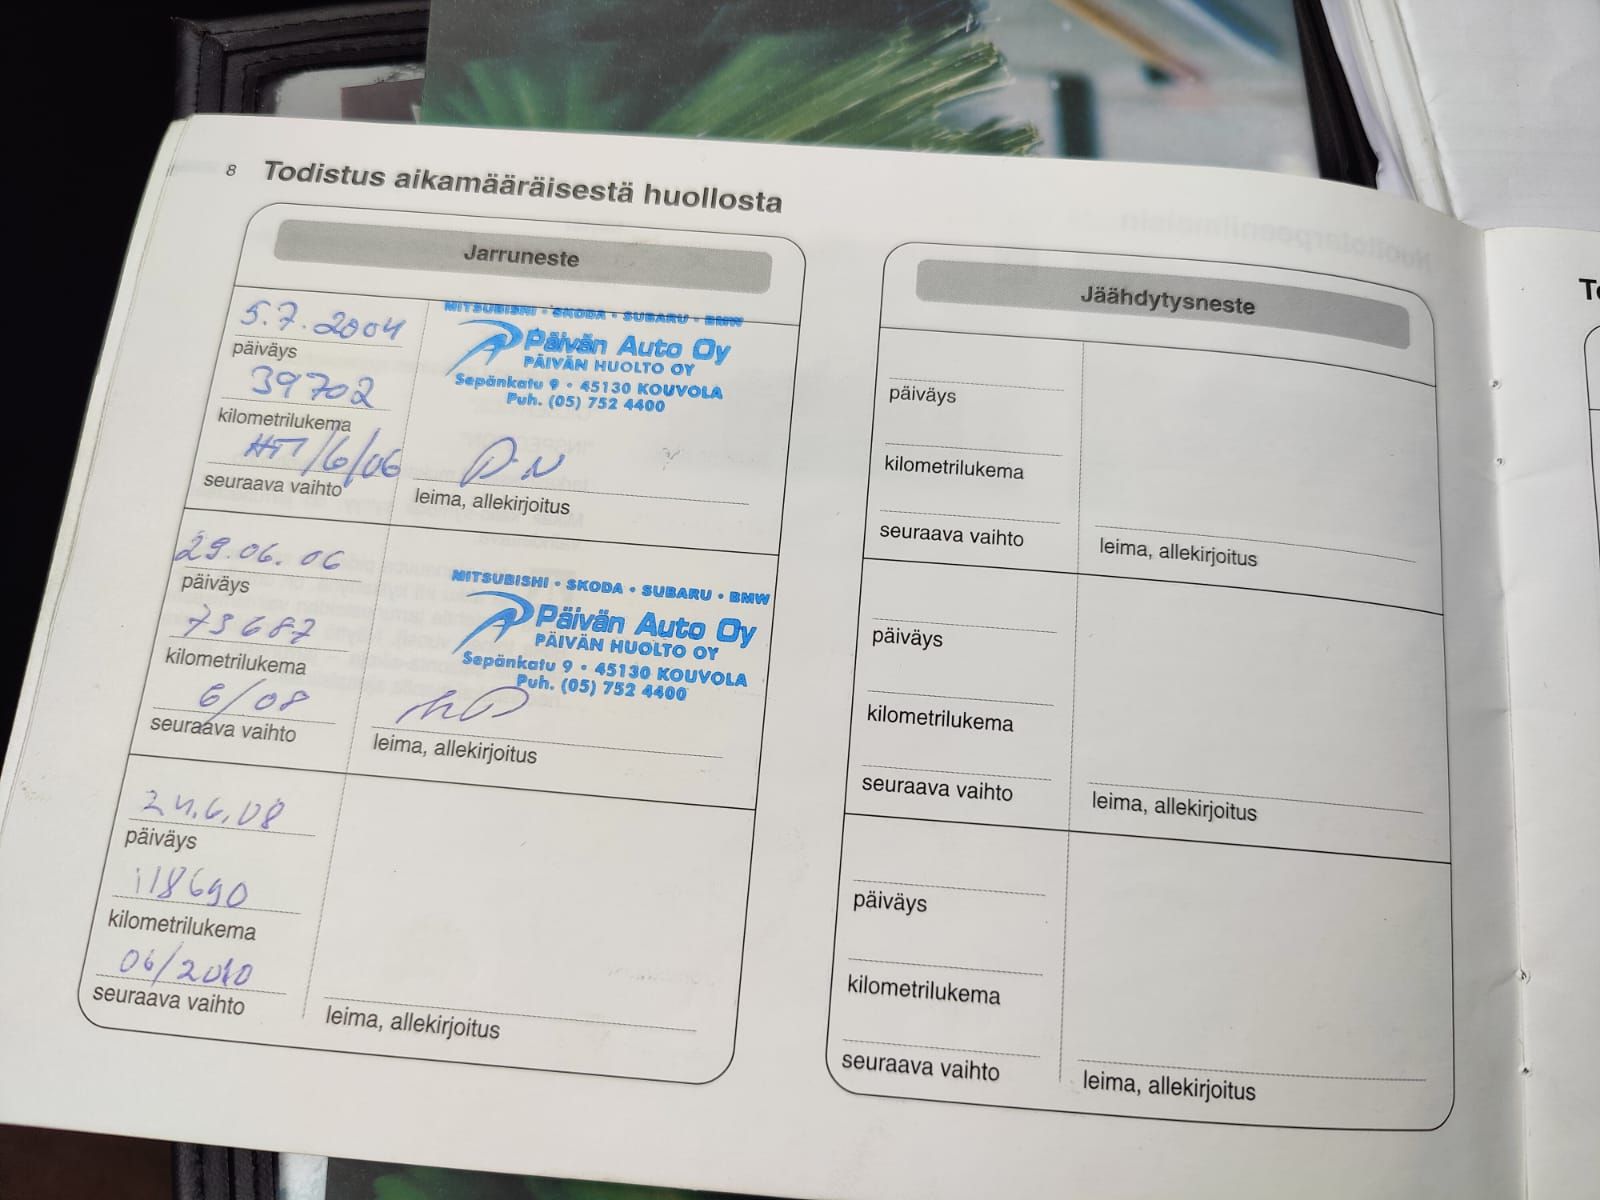 8 Todistus aikamääräisestä huollosta
Jarruneste
5.7.2004
päiväys
39702
kilometrilukema
/6/06
seuraava vaihto
MITSUBISHI • SKODA • SUBARU • BMW
Päivän Auto Oy
PÄIVÄN HUOLTO OY
Sepänkatu 9 • 45130 KOUVOLA
Puh. (05) 752 4400
leima, allekirjoitus
29.06.06
päiväys
73687
kilometrilukema
6/08
seuraava vaihto
MITSUBISHI • SKODA • SUBARU • BMW
Päivän Auto Oy
PÄIVÄN HUOLTO OY
Sepänkatu 9 • 45130 KOUVOLA
Puh. (05) 752 4400
leima, allekirjoitus
24.6.08
päiväys
118690
kilometrilukema
06/2010
seuraava vaihto
leima, allekirjoitus
Jäähdytysneste
päiväys
kilometrilukema
seuraava vaihto
leima, allekirjoitus
päiväys
kilometrilukema
seuraava vaihto
leima, allekirjoitus
päiväys
kilometrilukema
seuraava vaihto
leima, allekirjoitus